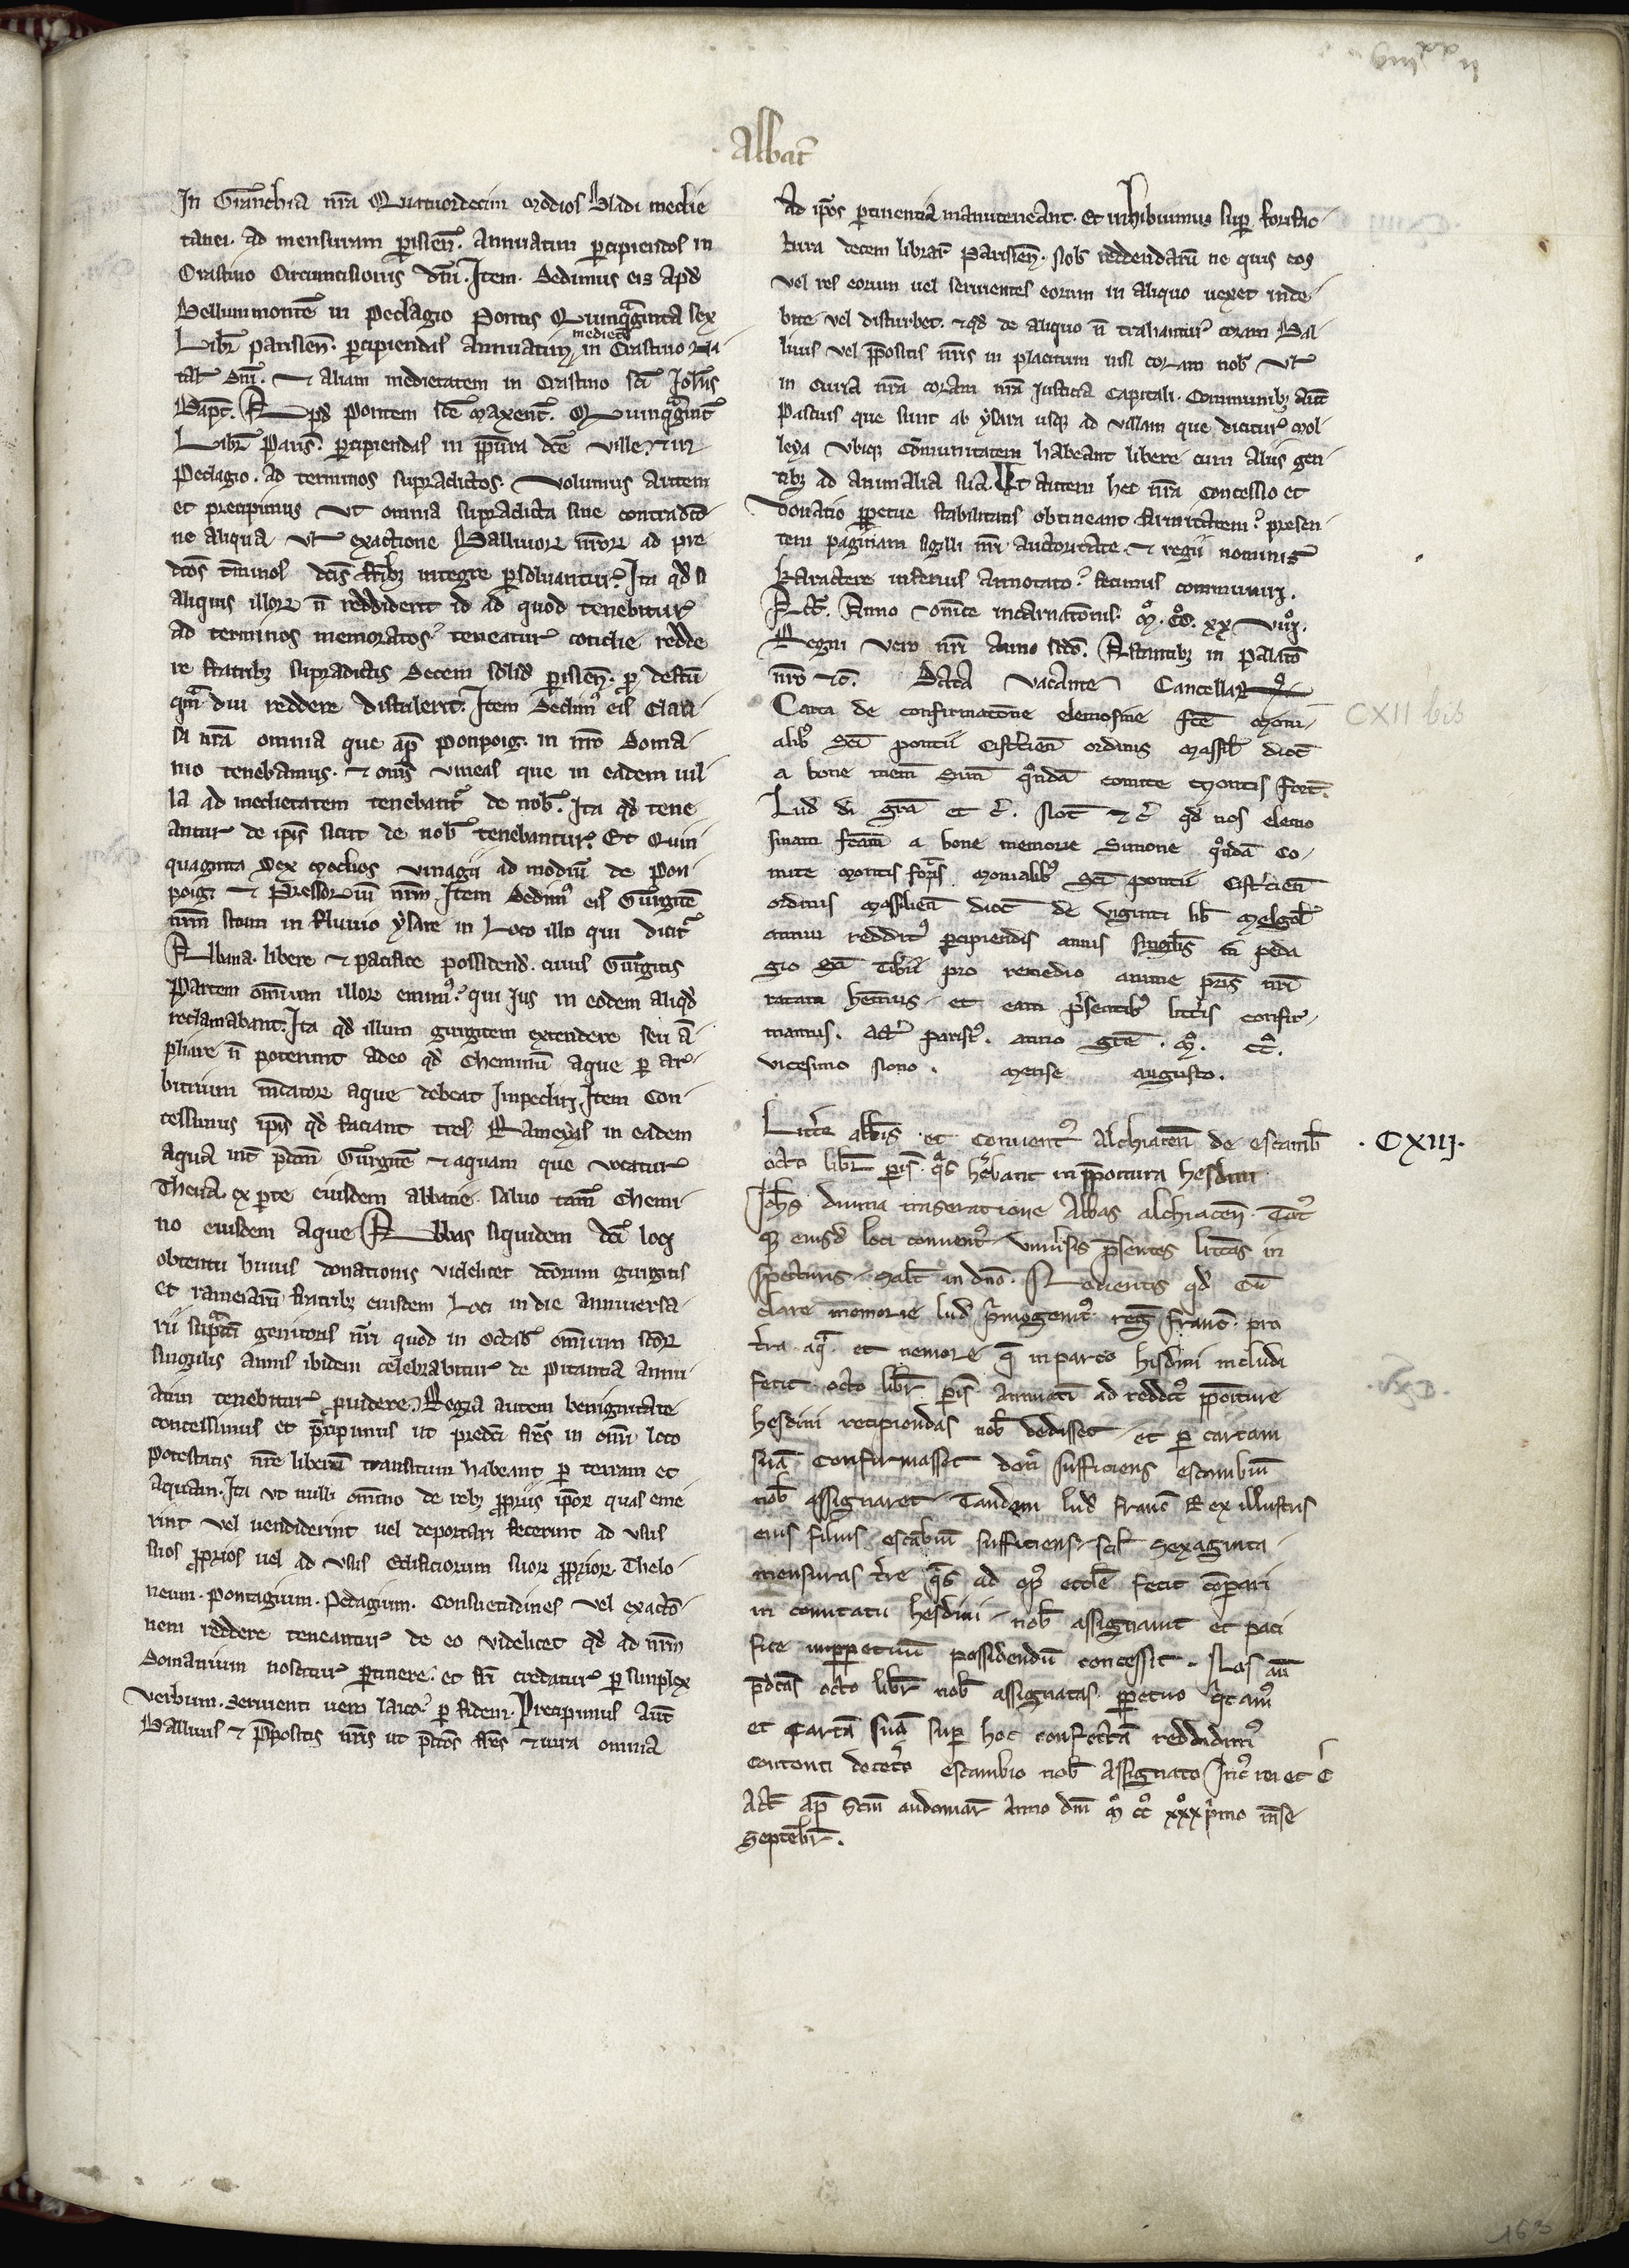 Abbat̃
In Granchia nr̃a Quatuordecim modios Bladi medie
tanei. ad mensuram parisien̄. Annuatim ꝑcipiendos in
Crastino Circuncisionis dn̄i. Item. Dedimus eis apd̃
Bellummontē in Pedagio Pontis Quinqᵃginta sex
Libr̃ parisien̄. ꝑcipiendas Annuatim medietᵉ in Crastino na
tal̃ dn̄i. et aliam medietatem in Crastino sc̃i Joh̃is
Bapt̃. Apd̃ Pontem sc̃e Maxent̃. Quinqᵃgint̃
Libr̃ Paris̃. ꝑcipiendas in p̄p̄itura dc̃e ville. et in
Pedagio. ad terminos supradictos. Volumus autem
et precipimus ut omnia supradicta sine contradictõ
ne aliqua ul̃ exactione Balliuorꝫ nr̃orꝫ ad pre
dc̃os t̃minos dc̃is fr̃ibꝫ integre ꝑsoluantur. Ita qd̃ si
aliquis illorꝫ n̄ reddiderit id ad quod tenebitur
ad terminos memoratos. teneatur cotidie redde
re fratribꝫ supradictis Decem solid̃ parisien̄. ꝓ defcũ
qm̃ diu reddere distulerit. Item dedimꝰ eis Clau
sa nr̃a omnia que ap̃ Ponpoig̃. in nr̃o Doma
nio tenebamus. et om̃s vineas que in eadem vil
la ad medietatem tenebant̃ de nob̃. Ita qd̃ tene
antur de ip̃is sicut de nob̃ tenebantur. Et Quin
quaginta Sex Modios vinagij ad modiũ de Pon
poig̃. et Pressoriũ nr̃m. Item Dedimꝰ eis Gurgitē
nr̃m situm in fluuio ysare in Loco illo qui dicit̃
Abbana. libere et pacifice possidend̃. cuius Gurgitis
Partem omnium illorꝫ emimꝰ. qui Jus in eodem aliqd̃
reclamabant. Ita qd̃ illum gurgitem extendere seu ā
pliare n̄ poterunt adeo qd̃ Cheminũ aque ꝑ ar
bitrium m̃catorꝫ aque debeat Impediri. Item Con
cessimus ip̃is qd̃ faciant tres Rameyas in eadem
aqua int̃ p̃dc̃m Gurgitē et aquam que vocatur
Theua. ex ꝑte eiusdem abbatie. saluo tam̃ Chemi
no eiusdem Aque. Abbas siquidem dc̃i loci
obtentu huius donationis videlicet dc̃orum gurgitis
et rameiarũ fratribꝫ eiusdem Loci in die anniuersa
rij sup̃dc̃i genitoris nr̃i quod in Octab̃ omnium sc̃orꝫ
singulis annis ibidem celebrabitur de Pitantia annu
atim tenebitur ꝓuidere. Regia autem benignitate
concessimus et p̃cipimus ut predc̃i fr̃es in omni loco
Potestatis nr̃e liberũ transitum habeant ꝑ terram et
aquam. Ita ut nulli om̃ino de rebꝫ ꝓprijs ip̃orꝫ quas eme
rint vel uendiderint uel deportari fecerint ad usus
suos ꝓprios uel ad usus Edificiorum suorꝫ ꝓpriorꝫ. Thelo
neum. Pontagium. Pedagium. Consuetudines vel exactõ
nem reddere teneantur de eo videlicet qd̃ ad nr̃m
Domanium noscitur ꝑtinere. et sic̃ credatur ꝑ simplex
Verbum. Seruienti uero laico. ꝑ fidem. Precipimus aũt
Balliuis et p̄positis nr̃is ut p̃dc̃os fr̃es et iura omnia
Ad ip̃os ꝑtinentia manuteneant. Et inhibuimus suꝑ forisfac
tura decem librar̃ Parisien̄. nob̃ reddendarũ ne quis eos
vel res eorum uel seruientes eorum in aliquo uexet inde
bite vel disturbet. et qd̃ de aliquo n̄ trahantur coram Bal
liuis vel p̄positis nr̃is in placitum nisi coram nob̃ ul̃
in Curia nr̃a coram nr̃a Justicia Capitali. Communibꝫ aũt
Pascuis que sunt ab ysara usqꝫ ad villam que dicitur Mol
leya Ubiqꝫ Communitatem habeant libere cum aliis gen
tibꝫ ad animalia sua. Ut autem hec nr̃a Concessio et
Donatio ꝑpetue stabilitatis obtineant firmitatem. presen
tem paginam sigilli nr̃i auctoritate. et regij nominis
karactere inferius annotato. fecimus communiri.
Act̃. Anno Domĩce incarnatõnis. mͦ. ccͦ. xx viijͦ.
Regni vero nr̃i Anno scdõ. Astantibꝫ in Palatõ
nr̃o etc̃. Data Vacante Cancellar̃
Carta de confirmatõne elemosine fc̃e Moni
alibꝰ Sc̃i pontij Cist̃cien̄ ordinis Massil̃ dioc̃
a bone mem̃ Sim̃ qᵒndã comite Montis fort̃.
CXII bis
Lud̃ di gr̃a et c̃. Not̃ et c̃ qd̃ nos elemo
sinam fc̃am a bone memorie Simone qᵒndã Co
mite montis fort̃ Monialibꝰ Sc̃i pontij Cist̃cien̄
ordinis Massilien̄ dioc̃ de viginti lib̃ Melgol̃
annui redditꝰ ꝑcipiendis annis singulis in peda
gio Sc̃i Tib̃ij pro remedio anime pr̃is nr̃i
ratam hēmus. et eam p̃sentibꝰ litt̃is confir
mamus. act̃ parisꝰ. anno gr̃e. mͦ. ccͦ.
vicesimo nono. Mense augusto.
Litt̃e abb̃is et Conuentꝰ Alchiacen̄ de escamb̃
octo libr̃ par̃. qᵃs h̃ebant in p̄positura hesdini
. CXIIJ.
Joh̃s diuina miseratione Abbas alchiacen̄. Totꝰ
qꝫ eiusd̃ loci conuentꝰ. Vniuersis p̃sentes litt̃as in
specturis. Salt̃ in dño. Noueritis qd̃ cũ
clare memorie lud̃ p̃mogenitꝰ reg̃ franc̃. pro
t̃ra aqᵃ et nemore q̃ in parco hisdini includi
fecit octo libr̃ par̃ Annuatĩ ad reddit̃ p̄positure
hesdini recipiendas nob̃ dedisset. et ꝑ cartam
suã Confirmasset donc̃ sufficiens escambiũ
nob̃ assignaret. Tandem lud̃ franc̃ Rex illustris
eius filius escãbiũ sufficiens. scil̃ sexaginta
mensuras t̃re qᵃs ad opꝰ eccl̃e fecit cõpari
in comitatu hesdini. nob̃ assignauit et paci
fice inꝑpetuũ possidendũ concessit. Nos aũ
p̃dc̃as octo libr̃ nob̃ assignatas ꝑpetuo q̃tamꝰ
et Cartã suã suꝑ hoc confectã reddidimꝰ
Contenti de cet̃o escambio nob̃ assignato. In cꝰ rei et c̃
Act̃ ap̃ Sc̃m audomar̃ Anno dñi mͦ ccͦ xxxͦ p̃mo m̃se
Septembr̃.
163